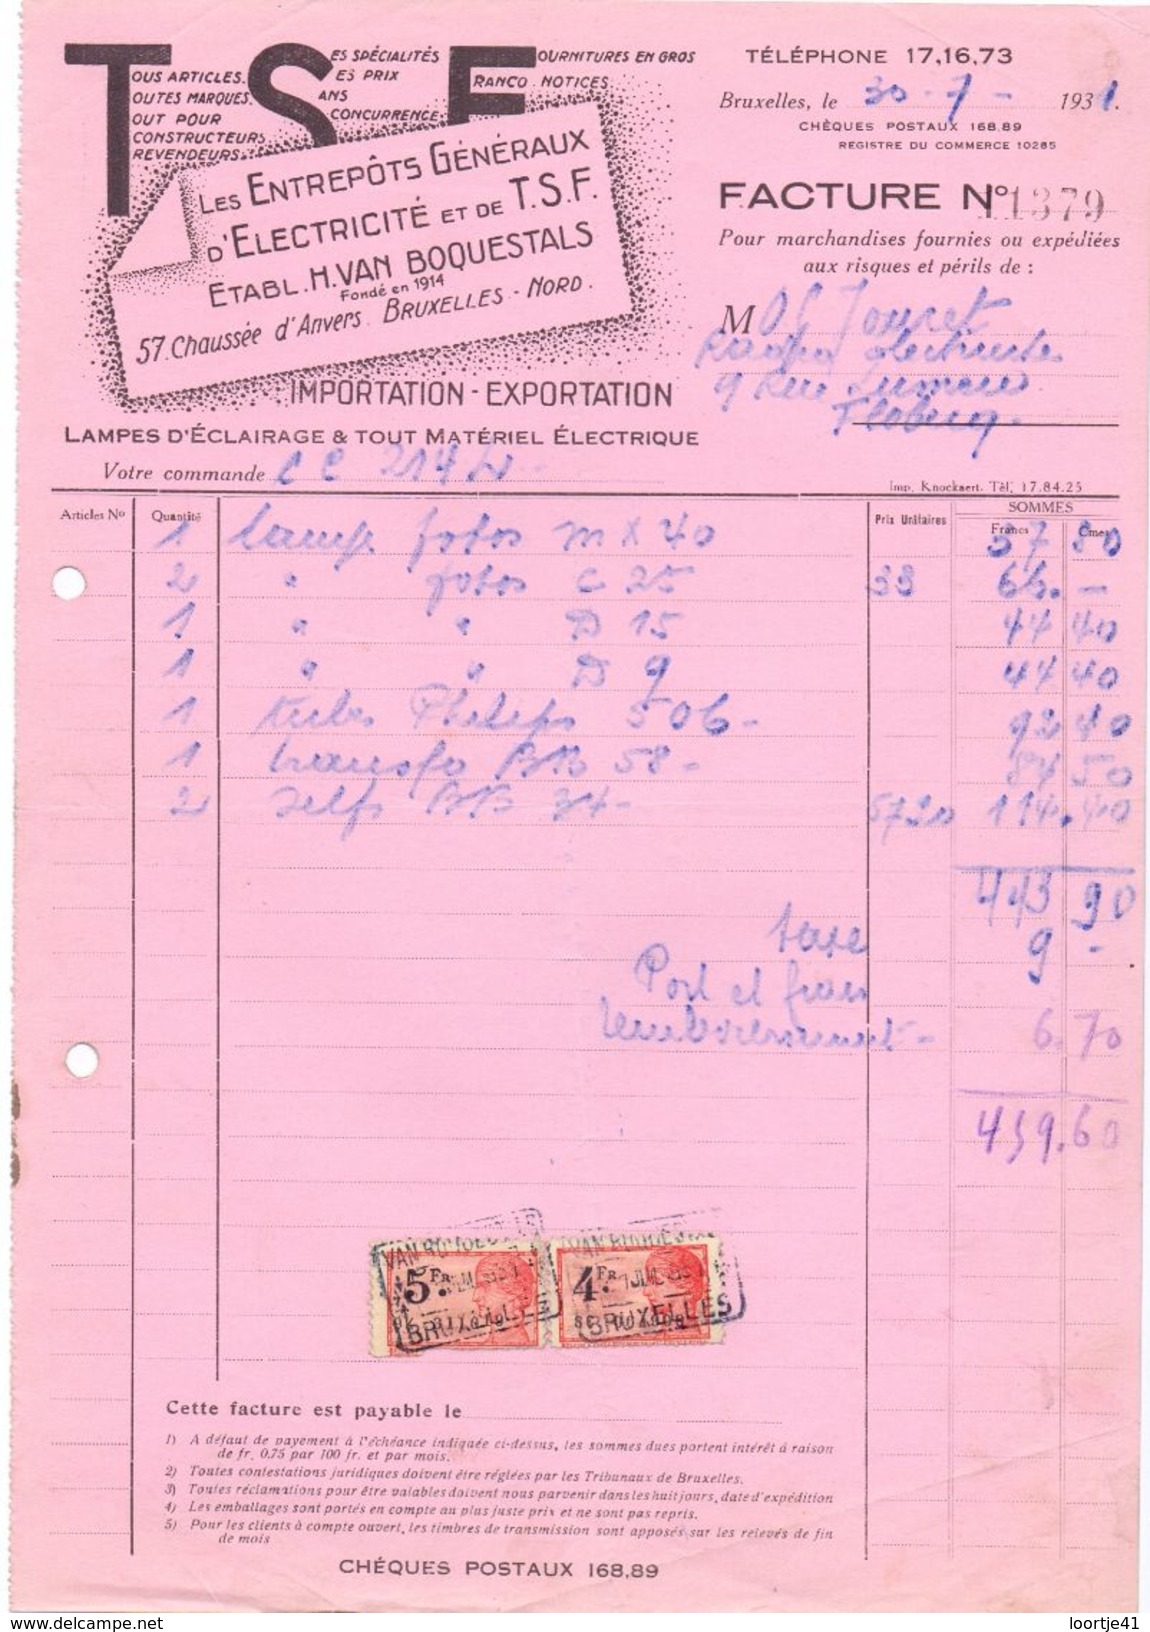 T S F
OUS ARTICLES.
OUTES MARQUES.
OUT POUR
CONSTRUCTEURS
REVENDEURS
ES SPÉCIALITÉS
ES PRIX
ANS
CONCURRENCE
OURNITURES EN GROS
RANCO NOTICES
LES ENTREPÔTS GÉNÉRAUX
D'ELECTRICITÉ ET DE T.S.F.
ETABL. H. VAN BOQUESTALS
Fondé en 1914
57. Chaussée d'Anvers. BRUXELLES - NORD.
IMPORTATION - EXPORTATION
LAMPES D'ÉCLAIRAGE & TOUT MATÉRIEL ÉLECTRIQUE
TÉLÉPHONE 17,16,73
Bruxelles, le 30-7- 1931.
CHÈQUES POSTAUX 168.89
REGISTRE DU COMMERCE 10285
FACTURE No 1379
Pour marchandises fournies ou expédiées
aux risques et périls de :
M Jouret
Radio
9 Rue
Flobecq.
Votre commande
Imp. Knockaert. Tél. 17.84.25
Articles No Quantité Prix Unitaires SOMMES
Francs Cmes
1 lamp fotos MX 40 37 80
2 " fotos C 25 33 66. -
1 " " D 15 44 40
1 " " D 9 44 40
1 tube Philips 506- 92 40
1 transfo BB 58- 84 50
2 selfs BB 34- 57 20 114.40
443 90
taxe 9 -
Port et frais
remboursement- 6.70
459.60
5 FR
4 FR
BRUXELLES
BRUXELLES
Cette facture est payable le
1) A défaut de payement à l'échéance indiquée ci-dessus, les sommes dues portent intérêt à raison
de fr. 0.75 par 100 fr. et par mois.
2) Toutes contestations juridiques doivent être réglées par les Tribunaux de Bruxelles.
3) Toutes réclamations pour être valables doivent nous parvenir dans les huit jours, date d'expédition
4) Les emballages sont portés en compte au plus juste prix et ne sont pas repris.
5) Pour les clients à compte ouvert, les timbres de transmission sont apposés sur les relevés de fin
de mois
CHÉQUES POSTAUX 168.89
www.delcampe.net
loortje41